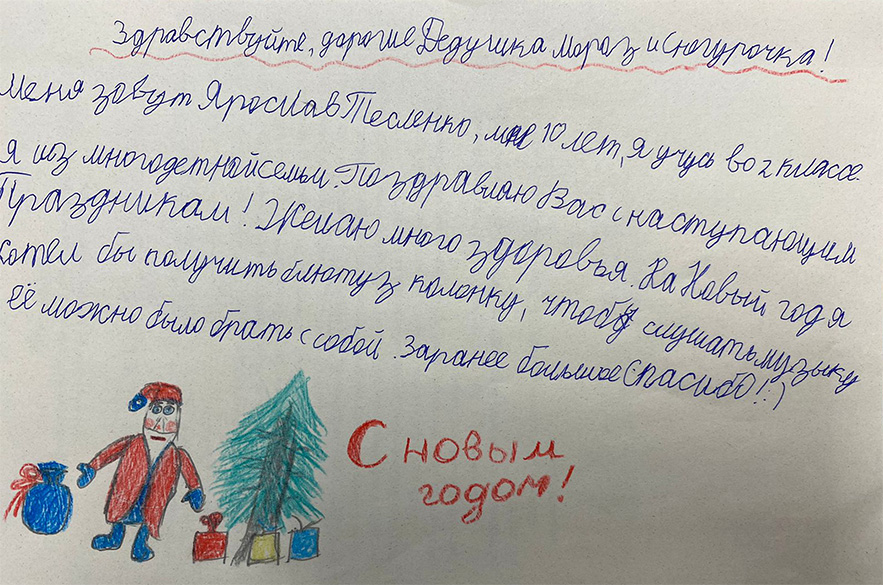 Здравствуйте, дорогие Дедушка мороз и Снегурочка!
Меня зовут Ярослав Тесленко, мне 10 лет, я учусь во 2 классе.
Я из многодетнойсемьи. Поздравляю Вас с наступающим
Праздникам! Желаю много здоровья. На Новый год я
хотел бы получить блютуз колонку, чтобы слушать музыку
Её можно было брать с собой. Заранее большое спасибо! :)
С новым
годом!